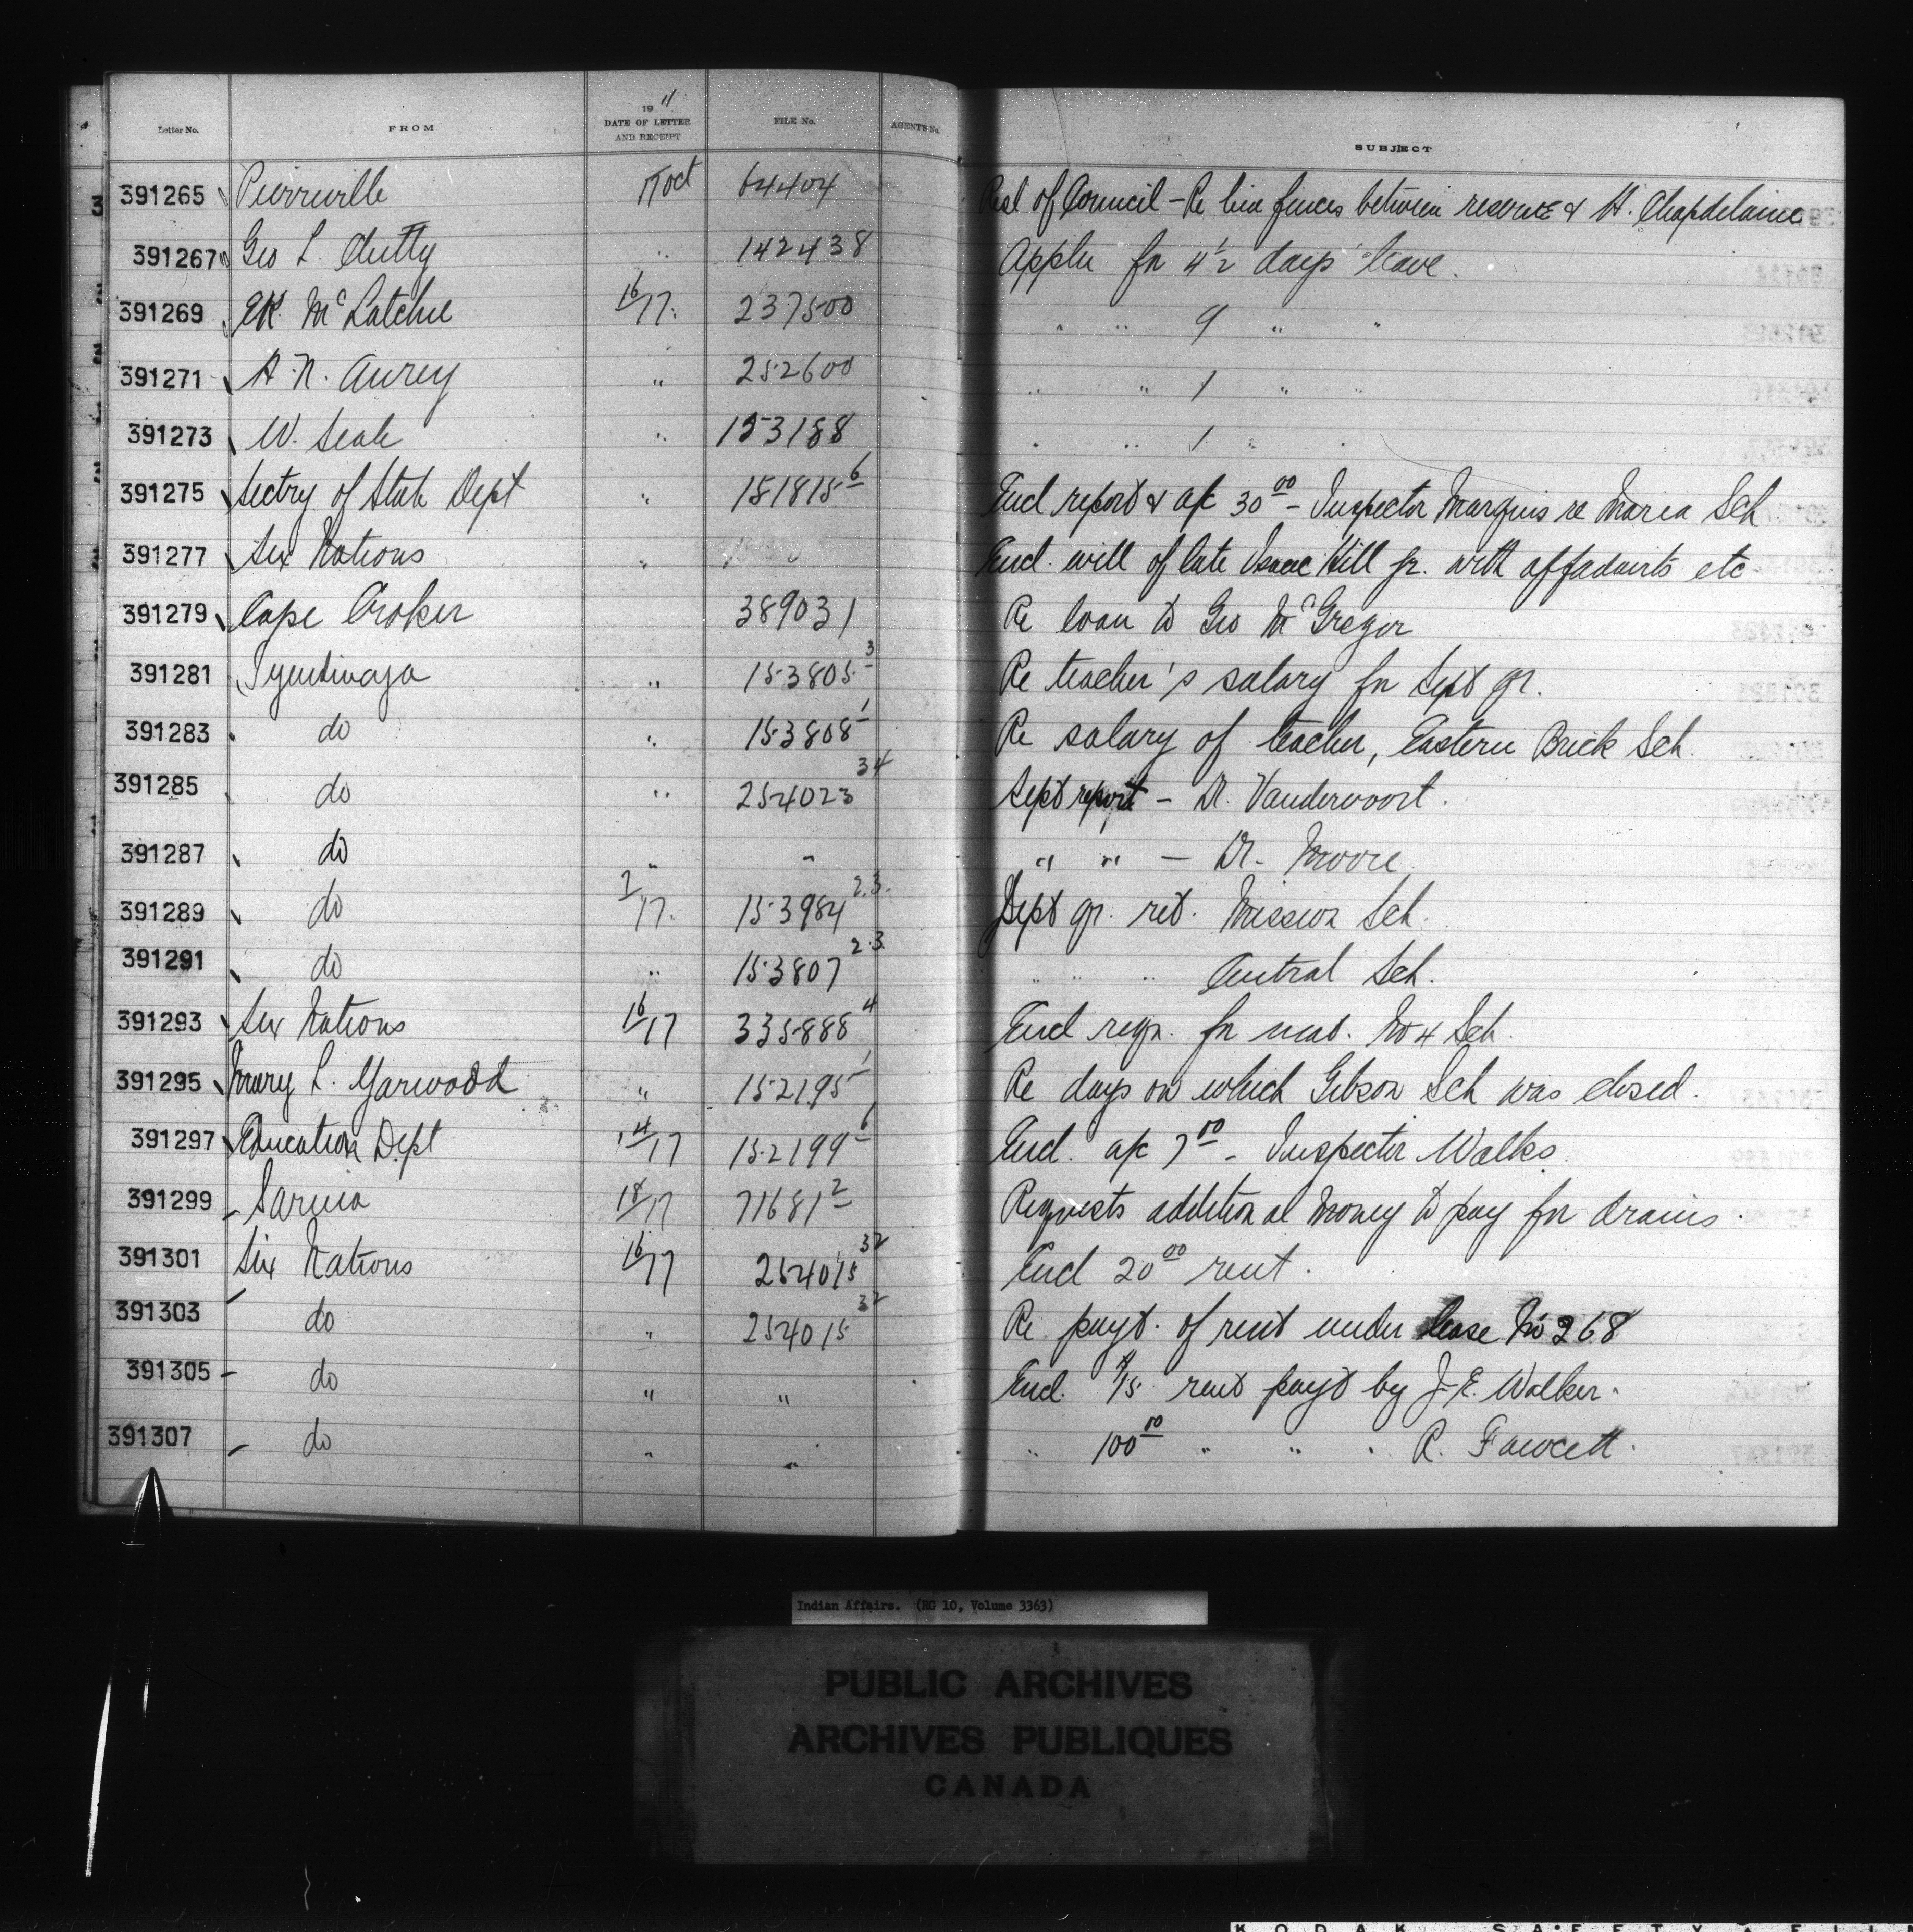 Letter No. FROM 19 11 DATE OF LETTER AND RECEIPT FILE No. AGENT'S No. SUBJECT
391265 Pierreville 17 Oct 64404 Resl of Council - Re line fences between reserve & H. Chapdelaine
391267 Geo L. Chitty " 142438 Appln. for 4 1/2 days leave.
391269 McLatchie 16/17 237500 " " 9 " "
391271 A. N. " 252600 " " 1 " "
391273 W. Seale " 153188 " " 1 "
391275 Sectry of State Dept " 151815-6 Encl report & a/c 30.00 - Inspector Marquis re Maria Sch
391277 Six Nations " Encl. will of late Isaac Hill Jr. with affadavits etc
391279 Cape Croker 389031 Re loan to Geo McGregor
391281 Tyendinaga " 153805-3 Re teacher's salary for Sept qr.
391283 do " 153808-1 Re salary of teacher, Eastern Brick Sch.
391285 do " 254023 34 Sept report - Dr. Vandervoort.
391287 do " " " " - Dr. Moore
391289 do 7/17 153984 2.3. Sept qr. ret. Mission Sch.
391291 do " 153807 2.3. " " " Central Sch.
391293 Six Nations 16/17 335888 4 Encl reqn. for mat. No 4 Sch.
391295 Mary L. Yarwood " 152195-1 Re days on which Gibson Sch was closed.
391297 Education Dept 14/17 152199-6 Encl. a/c 7.00 - Inspector Walks
391299 Sarnia 18/17 71681-2 Requests additional money to pay for drains.
391301 Six Nations 16/17 254015 32 Encl 20.00 rent.
391303 do " 254015 32 Re payt. of rent under lease No 268
391305 do " " Encl. $15 rent payt by J. E. Walker.
391307 do " " " 100.00 " " " R. Fawcett.
Indian Affairs. (RG 10, Volume 3363)
PUBLIC ARCHIVES
ARCHIVES PUBLIQUES
CANADA
KODAK SAFETY